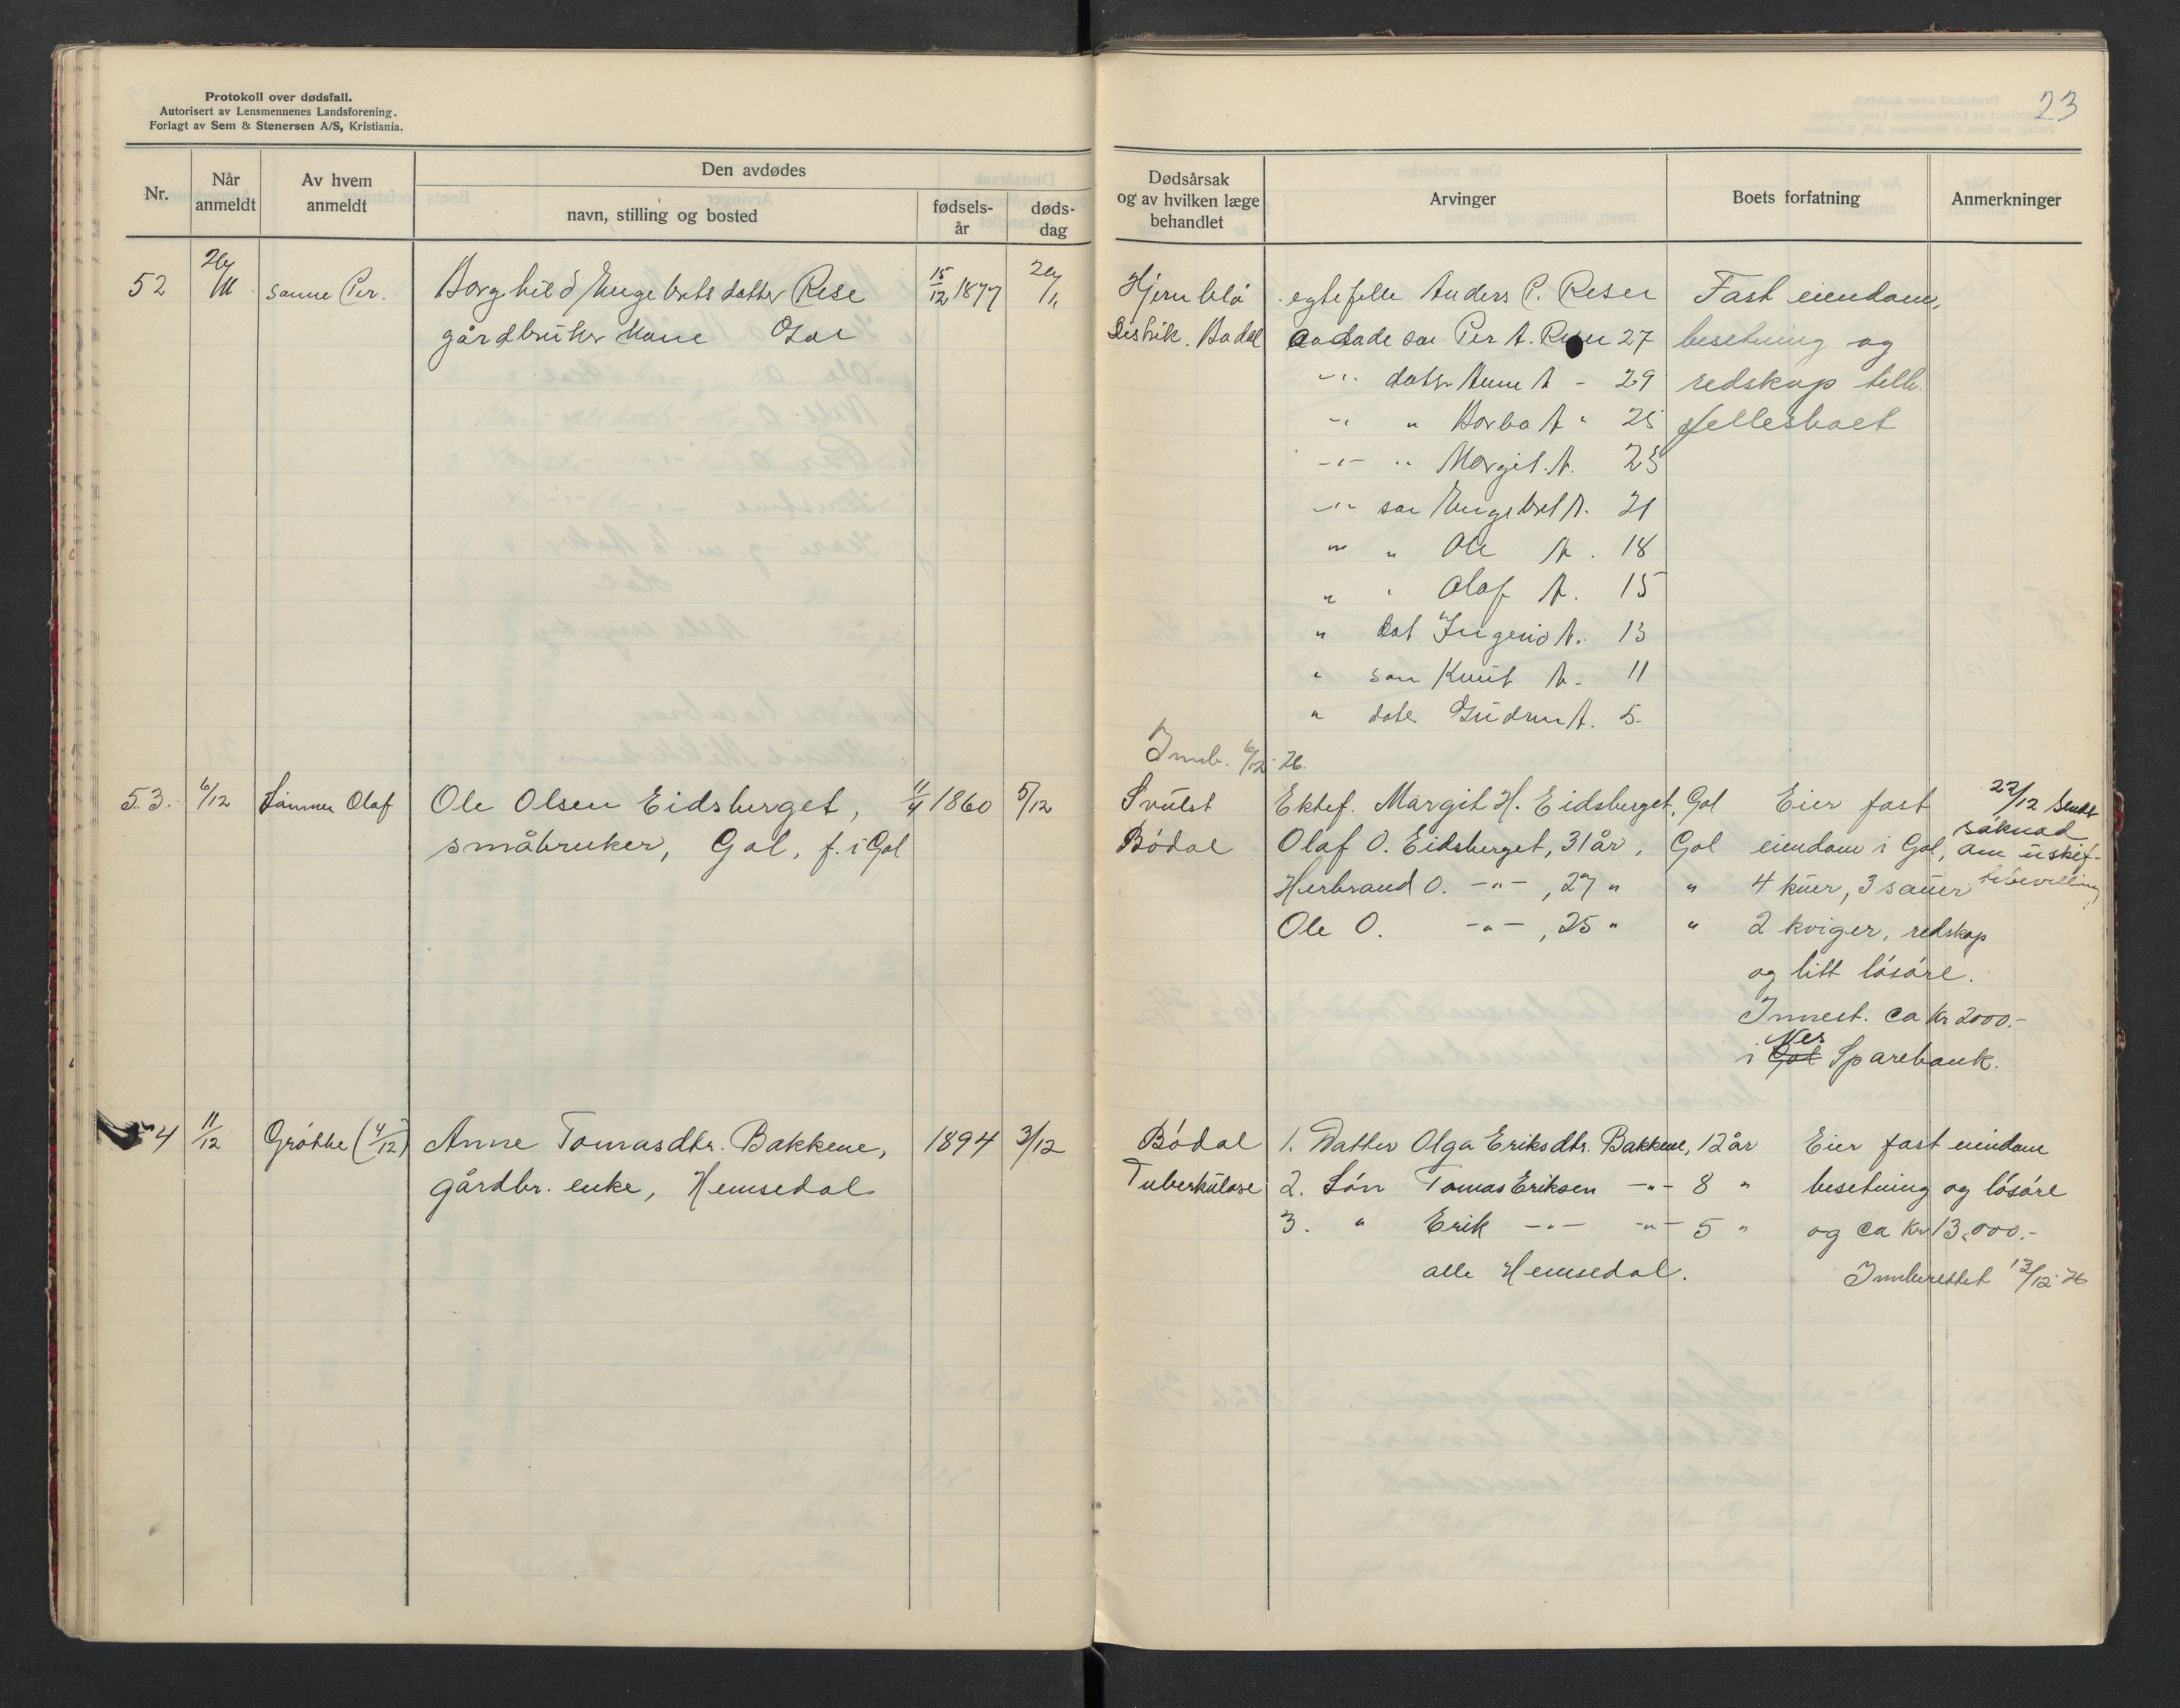 Protokoll over dødsfall.
Autorisert av Lensmennenes Landsforening.
Forlagt av Sem & Stenersen A/S, Kristiania.
23
Nr.
Når anmeldt
Av hvem anmeldt
Den avdødes
navn, stilling og bosted
fødsels-år
døds-dag
Dødsårsak og av hvilken læge behandlet
Arvinger
Boets forfatning
Anmerkninger
52 Per. Borghild Engebretsdatter Rese 15/12 1877
gårdbruker kone Gol
Hjerneblø
Distrik. Bødal
egtefelle Anders P. Resen
søn Per A. Resen 27
-"- dater Anne A - 29
-"- " Barbo A " 25
-"- " Margit A. 23
-"- søn Engebret A. 21
" " Ole A. 18
" " Olaf A. 15
" dat Ingerid A. 13
" søn Knut A. 11
" dater Gudrun A. 5
Fast eiendom,
besetning og
redskap tilh.
fellesboet
Innb. 6/12 26.
53. 6/12 Sønnen Olaf Ole Olsen Eidsberget, 11/4 1860 5/12
småbruker, Gol, f. i Gol
Svulst
Bødal
Ektef. Margit H. Eidsberget, Gol
Olaf O. Eidsberget, 31 år, Gol
Herbrand O. -"- , 27 " "
Ole O. -"- , 25 " "
Eier fast
eiendom i Gol,
4 kuer, 3 sauer
2 kviger, redskap
og litt løsøre.
Innest. ca kr 2000.-
i Gol Nes Sparebank.
22/12 sendt
søknad
om uskif-
tebevilling
54 11/12 Grøtte (4/12) Anne Tomasdtr. Bakkene, 1894 3/12
gårdbr. enke, Hemsedal
Bødal
Tuberkulose
1. Datter Olga Eriksdtr. Bakkene, 12 år
2. Søn Tomas Eriksen -"- 8 "
3. " Erik -"- -"- 5 "
alle Hemsedal.
Eier fast eiendom
besetning og løsøre
og ca kr 13.000.-
Innberettet 13/12 26